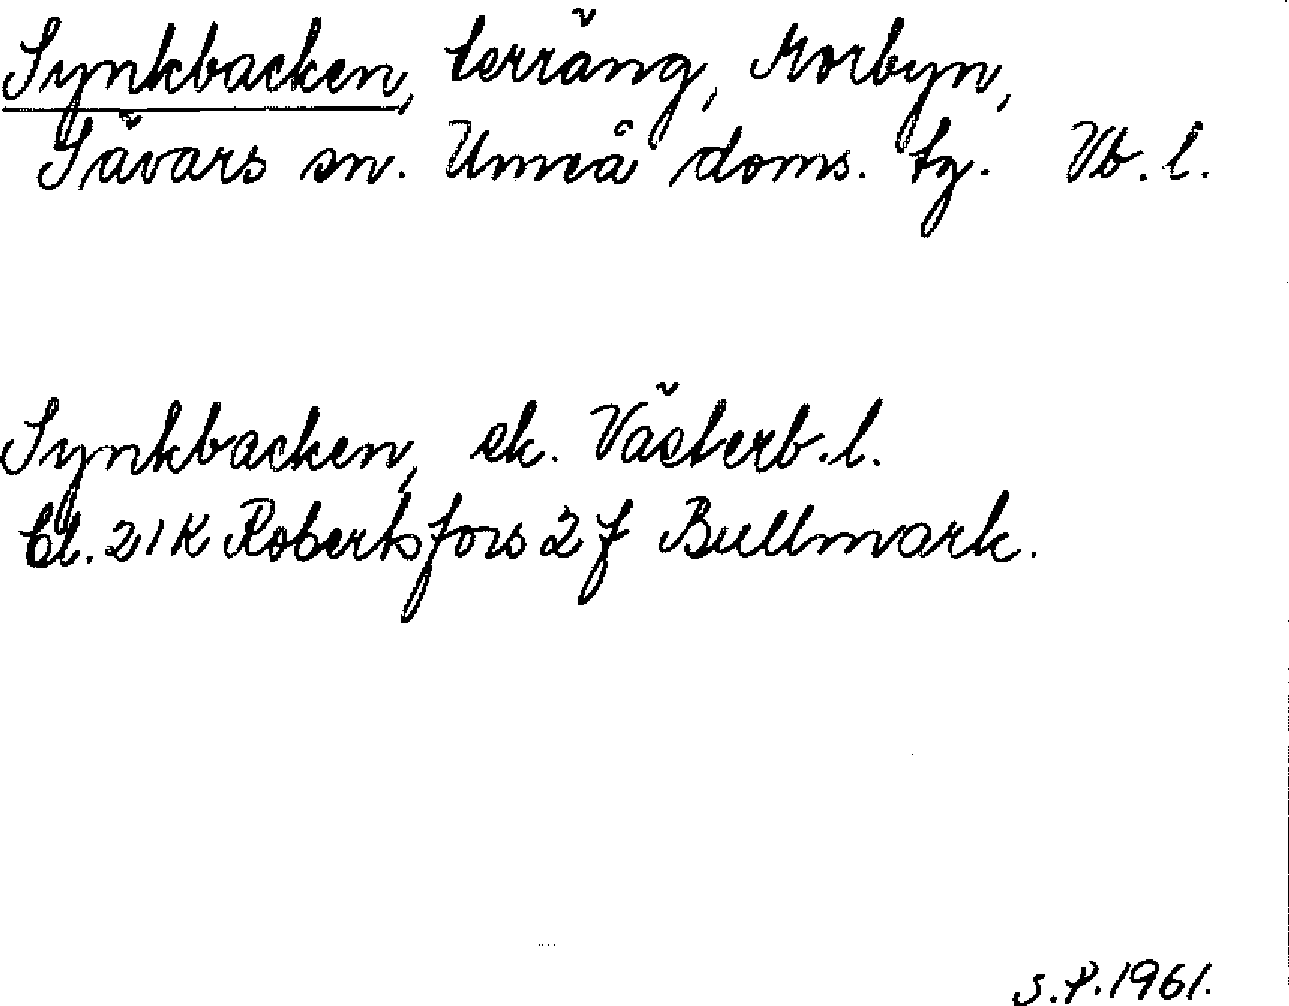 Synkbacken, terräng, Morbyn,
Sävars sn. Umeå doms. tg. Vb. l.
Synkbacken, ek. Västerb. l.
Bl. 21 K Robertsfors 2 f Bullmark.
S.P. 1961.